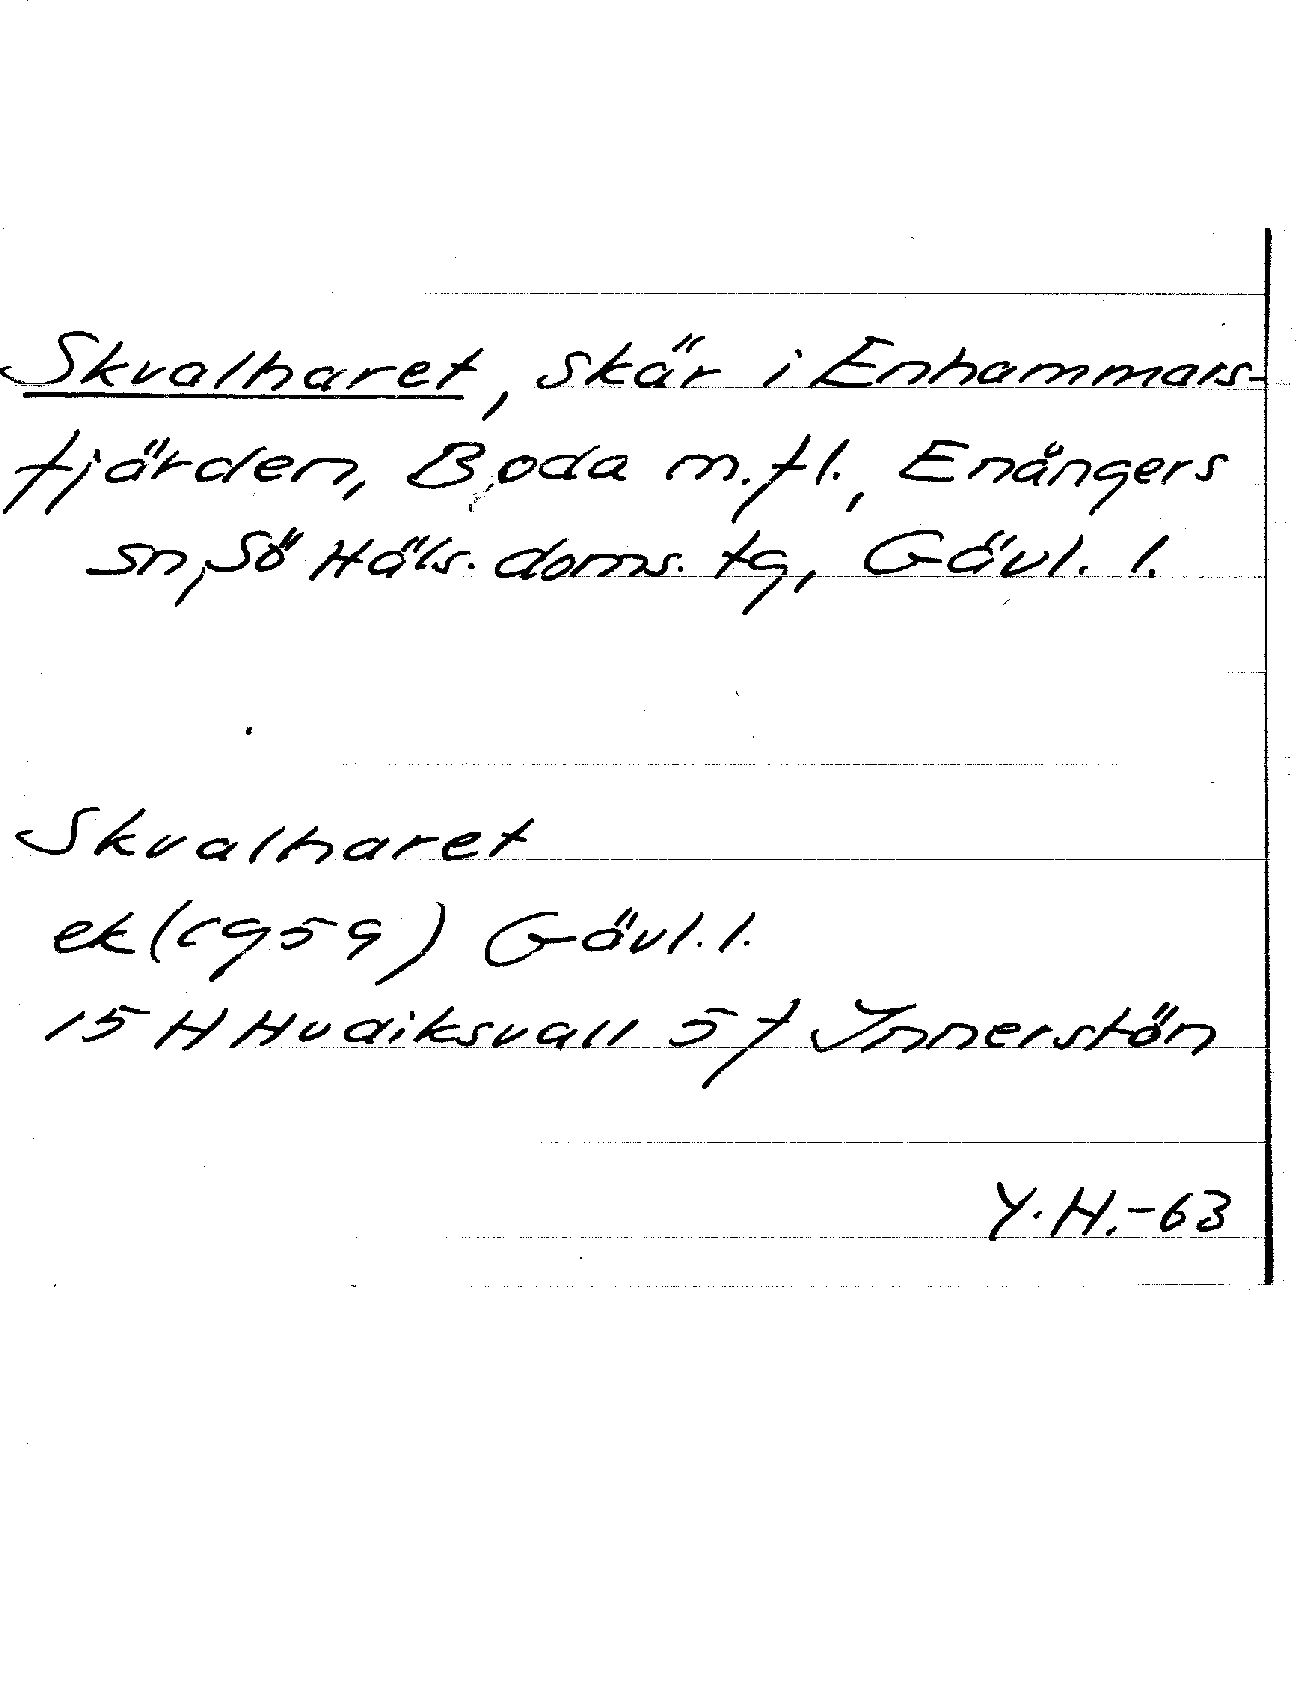 Skvalharet, skär i Enhammars-
fjärden, Boda m.fl., Enångers
sn, Sö Häls. doms. tg, Gävl. l.
Skvalharet
ek (c 1959) Gävl. l.
15 H Hudiksvall 5 f Innerstön
Y.H.-63